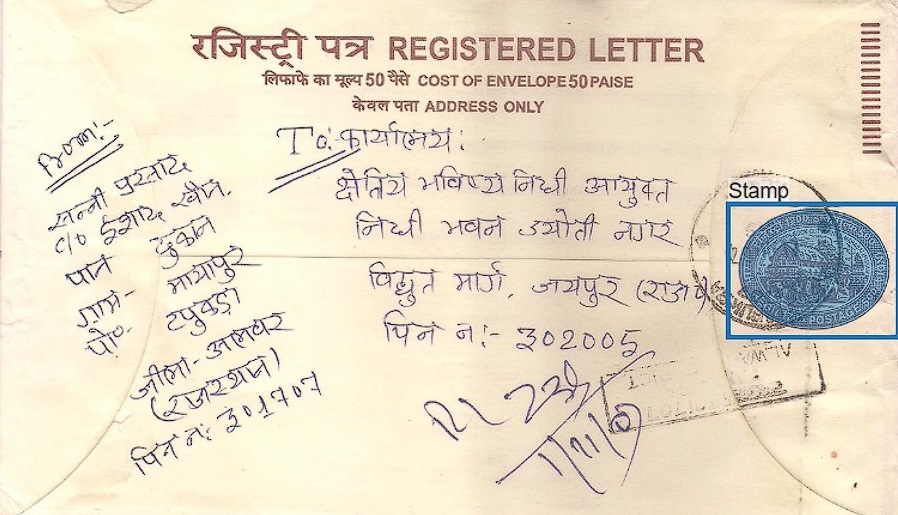 रजिस्ट्री पत्र REGISTERED LETTER
लिफाफे का मूल्य 50 पैसे COST OF ENVELOPE 50 PAISE
केवल पता ADDRESS ONLY
From:-
सन्नी प्रसाद
C/o ईशाद खान
पान दुकान
ग्राम- मायापुर
पो० टपुकड़ा
जीला- अलवर
(राजस्थान)
पिन न: 301707
To:- कार्यालय:
क्षेत्रिय भविष्य निधी आयुक्त
निधी भवन ज्योती नगर
विद्युत मार्ग, जयपुर (राज०)
पिन न:- 302005
Stamp
POSTAGE
ALWAR